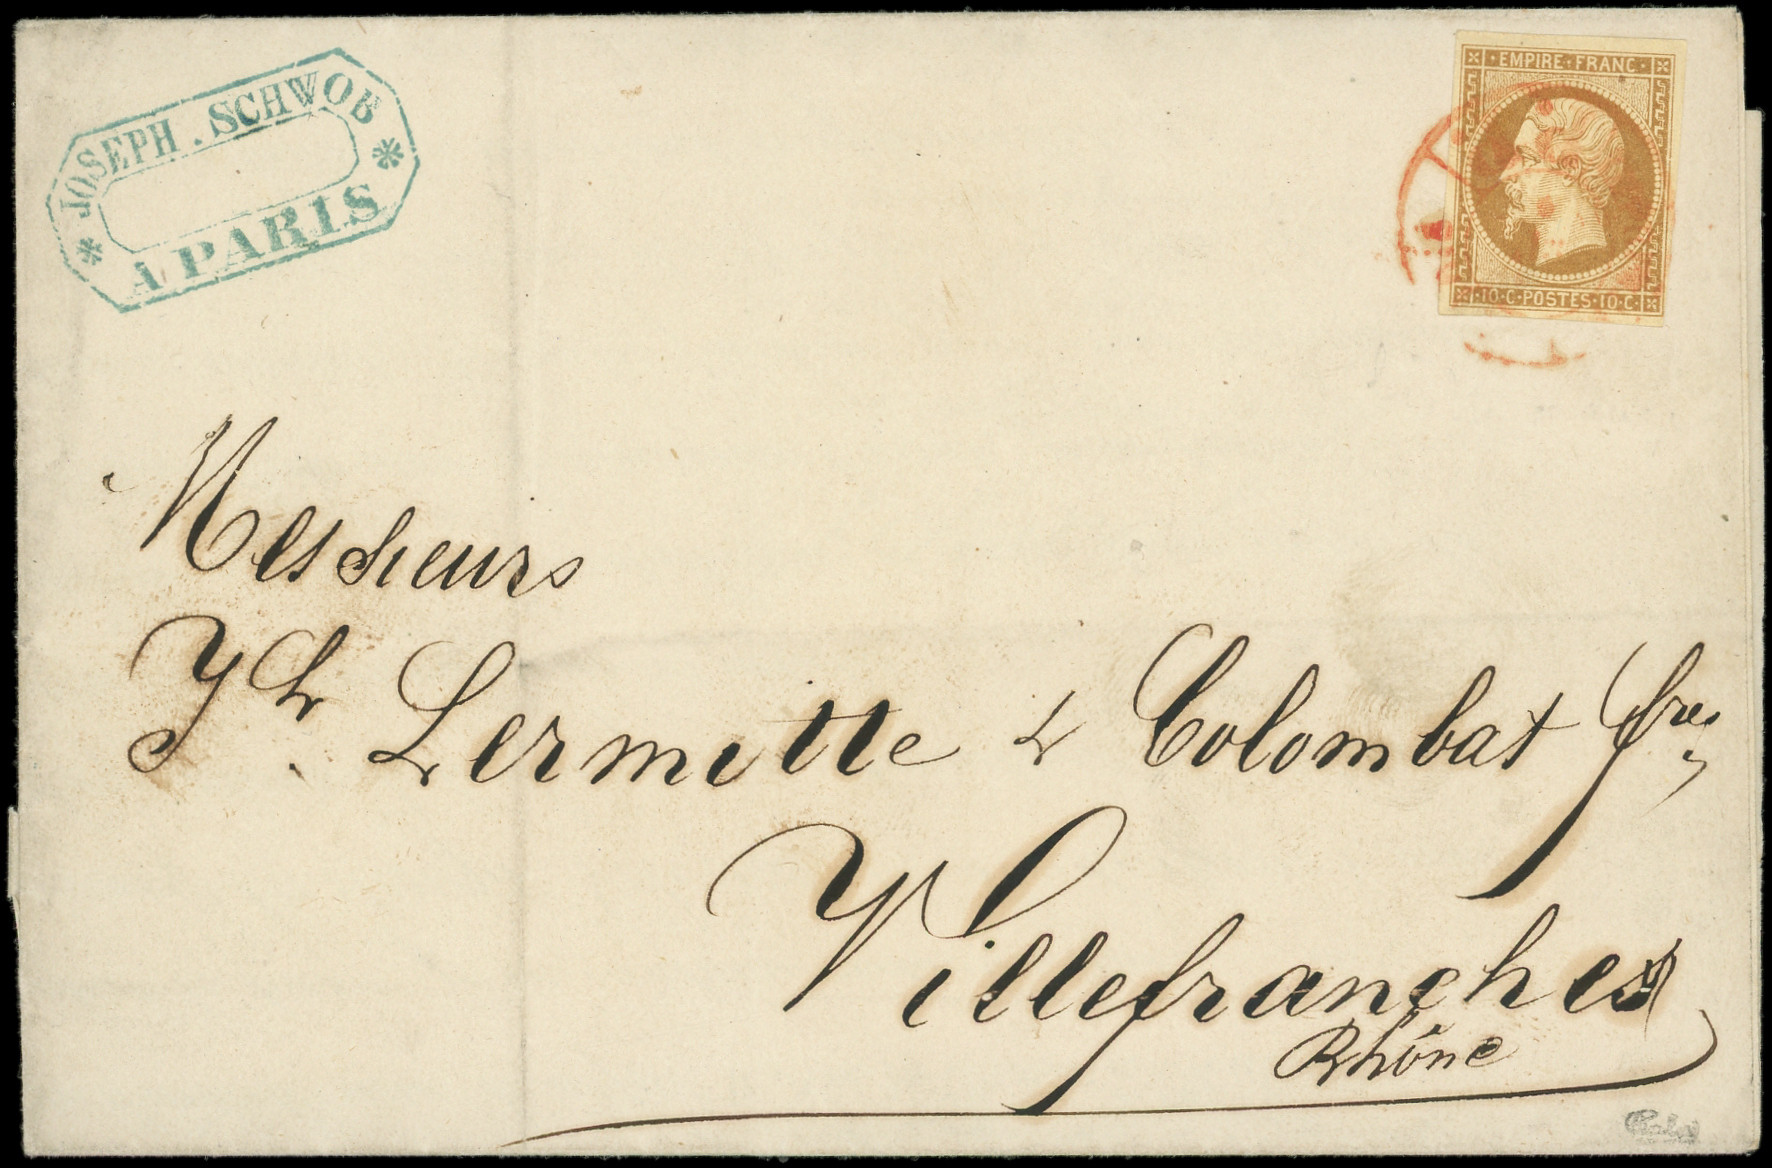 JOSEPH. SCHWOB
A PARIS
EMPIRE FRANC
10·C·POSTES·10·C·
Messieurs
Jh. Lermitte & Colombat fres
Villefranche
Rhône